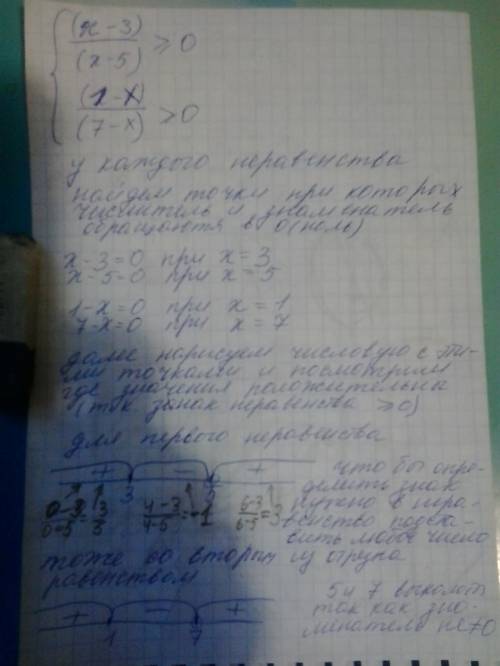 (x-3)/(x-5) ≥ 0
(1-x)/(7-x) ≥ 0
у каждого неравенства
найдем точки при которых
числитель и знаменатель
обращаются в 0 (ноль)
x-3=0 при x=3
x-5=0 при x=5
1-x=0 при x=1
7-x=0 при x=7
далее нарисуем числовую с эти-
ми точками и посмотрим
где значения положительна
(так занак неравенства ≥0)
для первого неравенства
+ - +
3 5
(0-3)/(0-5)=3/5 (4-3)/(4-5)=-1 (6-3)/(6-5)=3
что бы опре-
делить знак
нужно в нера-
венство подста-
вить любое число
тоже со вторым
равенством
5 и 7 выколоты
так как зна-
менатель не ≠0
+ - +
1 7